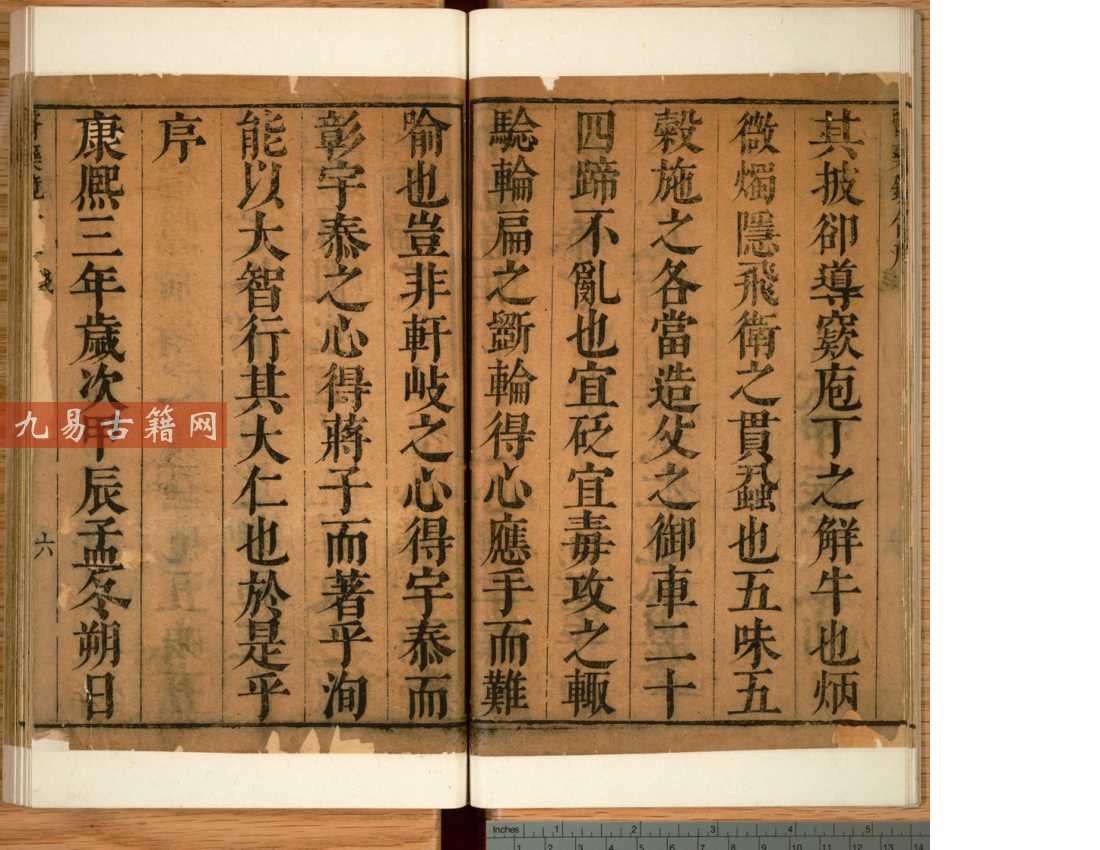 其披卻導窽庖丁之解牛也炳
微燭隱飛衛之貫蝨也五味五
穀施之各當造父之御車二十
四蹄不亂也宜砭宜毒攻之輙
騐輪扁之斵輪得心應手而難
喻也豈非軒岐之心得宇泰而
彰宇泰之心得蔣子而著乎洵
能以大智行其大仁也於是乎
序
康熙三年歲次甲辰孟冬朔日
六
九易古籍网
Inches 1 2 3 4 5
1 2 3 4 5 6 7 8 9 10 11 12 13 14